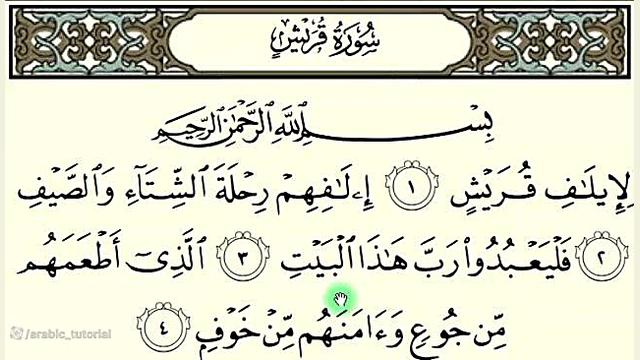 سُورَةُ قُرَيْشٍ
بِسْمِ اللَّهِ الرَّحْمَٰنِ الرَّحِيمِ
لِإِيلَافِ قُرَيْشٍ ١ إِۦلَافِهِمْ رِحْلَةَ الشِّتَاءِ وَالصَّيْفِ
٢ فَلْيَعْبُدُوا رَبَّ هَٰذَا الْبَيْتِ ٣ الَّذِي أَطْعَمَهُم
مِّن جُوعٍ وَءَامَنَهُم مِّنْ خَوْفٍ ٤
/arabic_tutorial